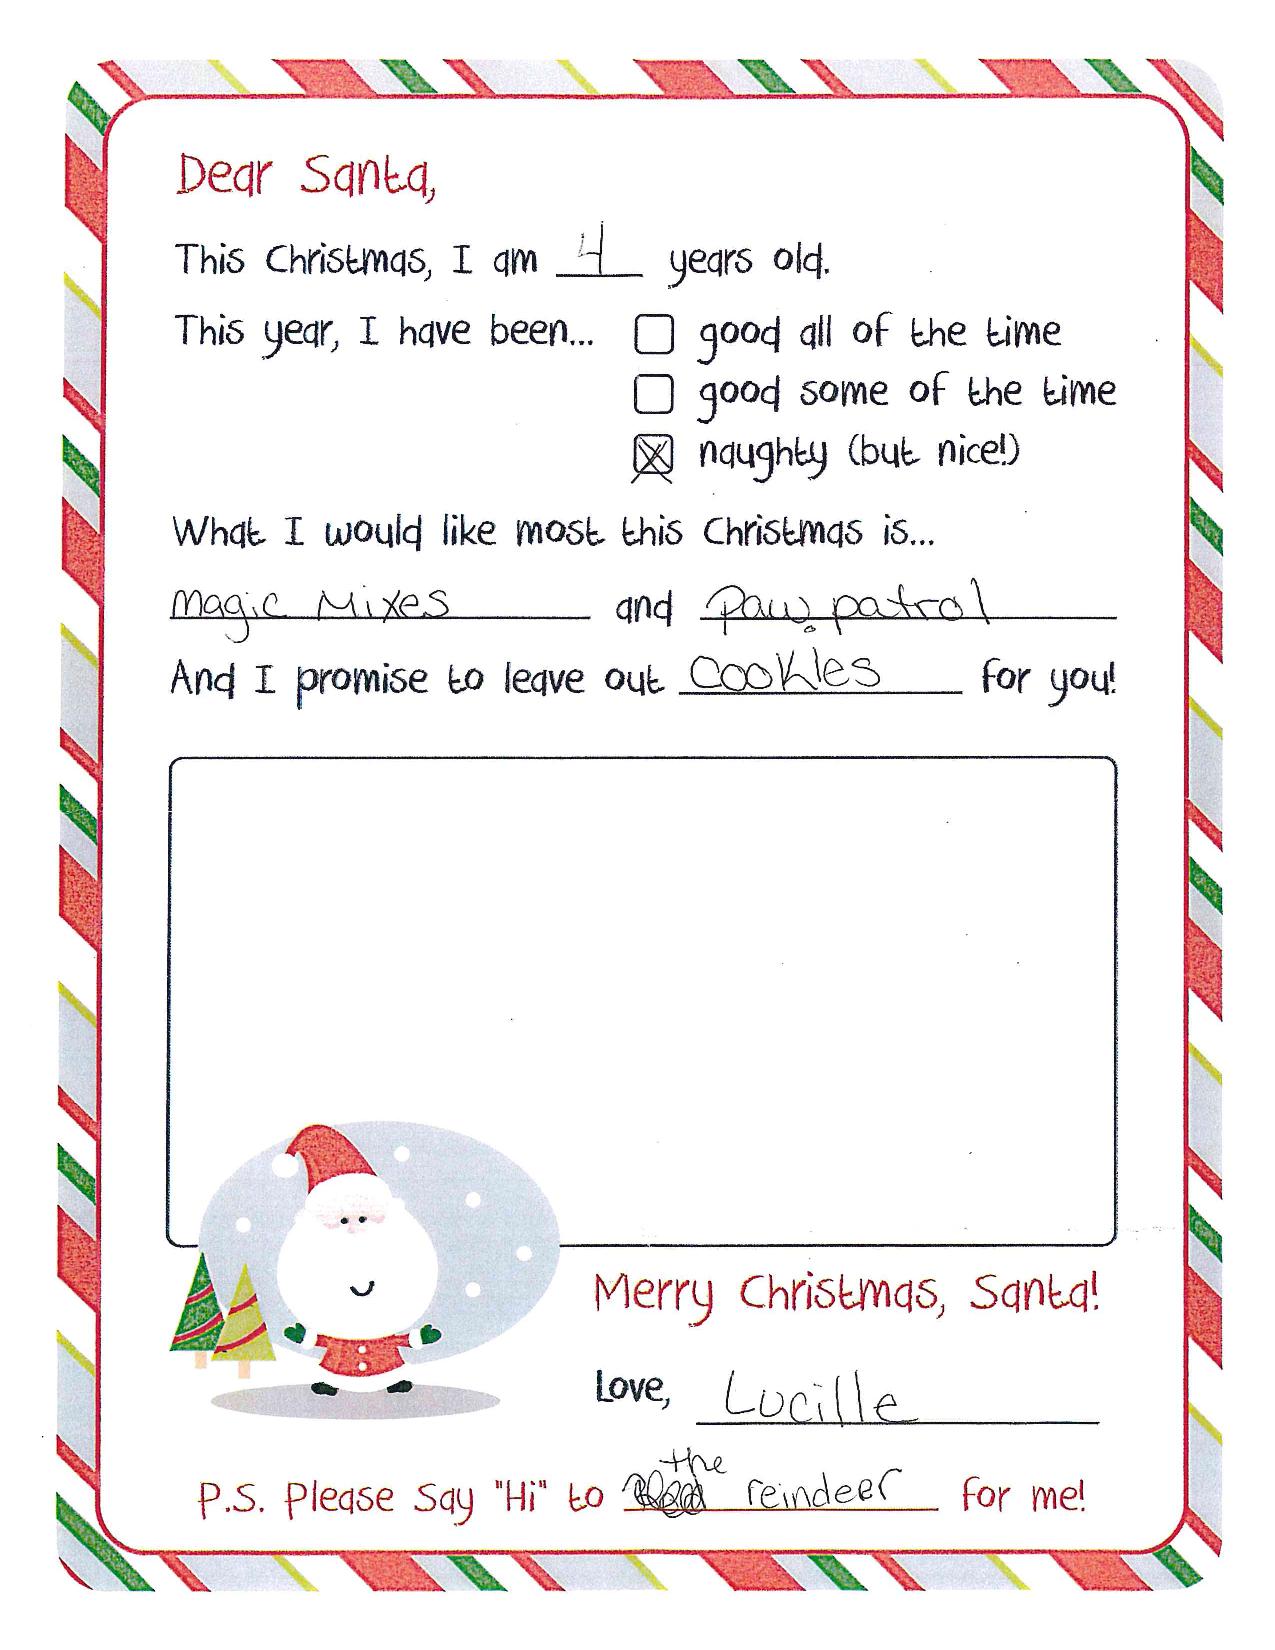 Dear Santa,
This Christmas, I am 4 years old.
This year, I have been... good all of the time
good some of the time
naughty (but nice!)
What I would like most this Christmas is...
Magic Mixes and Paw patrol
And I promise to leave out Cookies for you!
Merry Christmas, Santa!
Love, Lucille
the
P.S. Please Say "Hi" to reindeer for me!